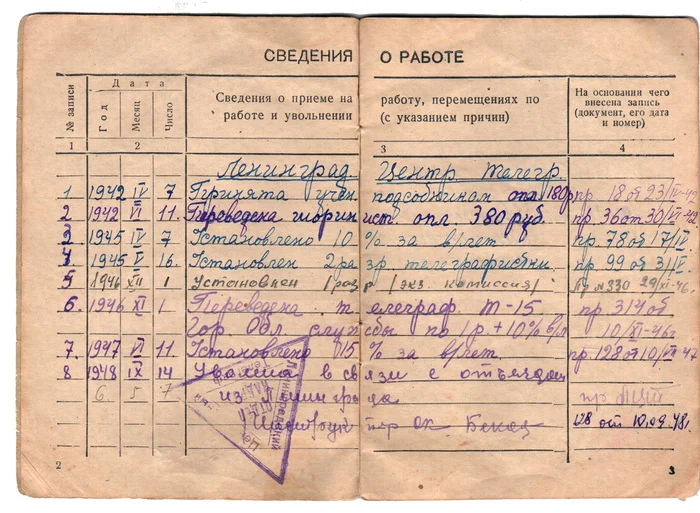 СВЕДЕНИЯ О РАБОТЕ
№ записи
Дата
Год
Месяц
Число
Сведения о приеме на работу, перемещениях по
работе и увольнении (с указанием причин)
На основании чего
внесена запись
(документ, его дата
и номер)
1 2 3 4
Ленинград. Центр телегр.
1 1942 IV 7 Принята учен. подсобником опл 180р пр 18 от 23/IV-42
2 1942 VI 11. Переведена опл 380 руб. пр 36 от 30/VI-42
3 1945 IV 7 Установлено 10 % за в/лет пр. 78 от 17/IV
4 1945 V 16. Установлен 2 разр телеграфистки. пр. 99 от 3/V.
5 1946 XII 1 Установлен 1 разр (экз. комиссия) Пр №330 29/XI-46.
6. 1946 XI 1 Переведена телеграф. Т-15 пр. 314 от
Гор Обл. службы по 1 р. + 10% в/л 10/XI-46г
7. 1947 VI 11. Установлено 15 % за в/лет. пр 128 от 10/VI-47
8 1948 IX 14 Уволена в связи с отъездом
6 5 7 из Ленинграда пр
178 от 10.09.48г.
ОТДЕЛ
КАДРОВ
2
3